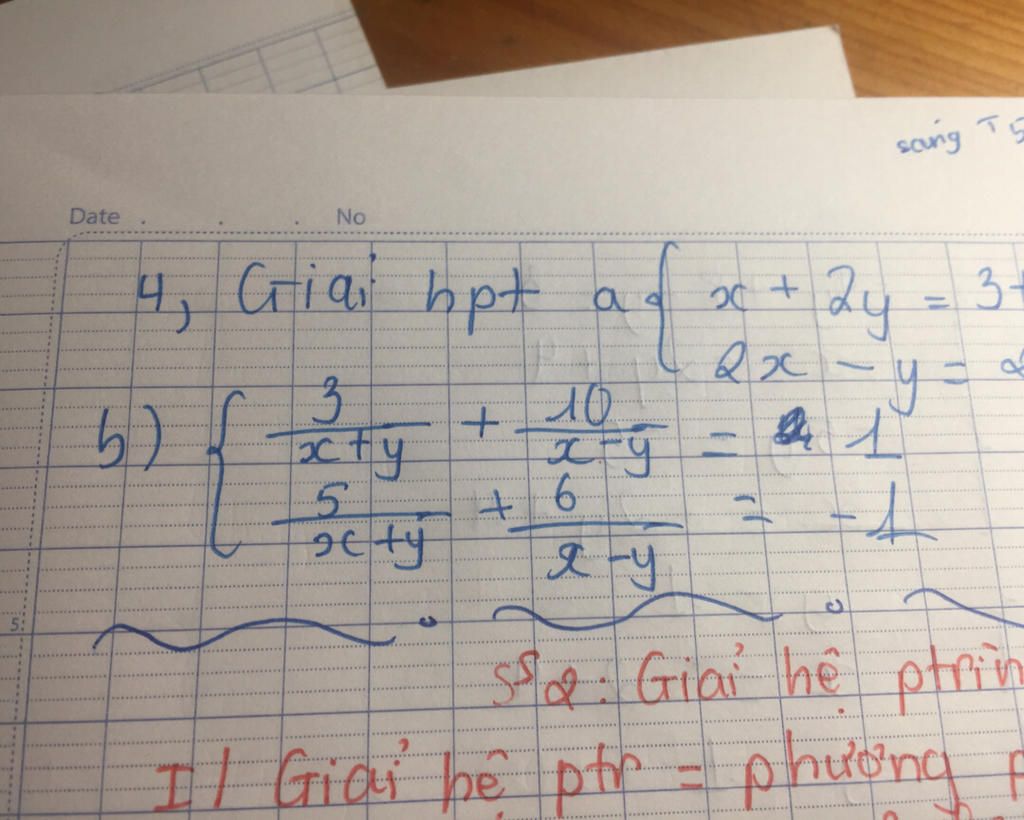 sáng T5
Date . . . No
4, Giải hpt a { x + 2y = 3
2x - y =
b) { 3/(x+y) + 10/(x-y) = 1
5/(x+y) + 6/(x-y) = -1
5
§§2: Giải hệ
I/ Giải hệ ptr = phương
5